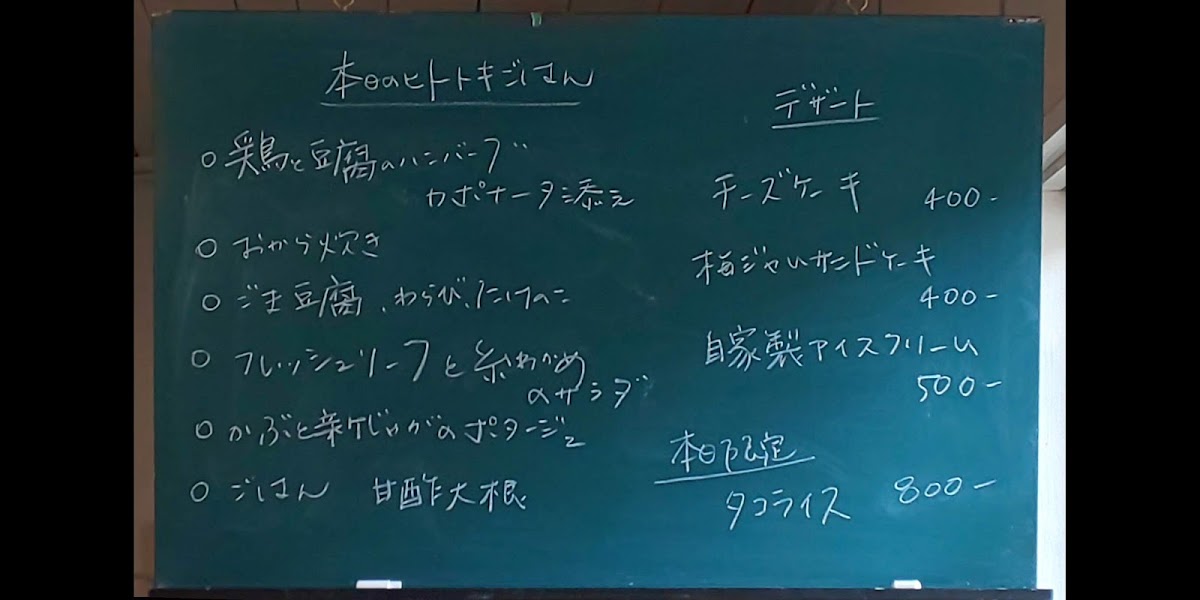 本日のヒトトキごはん
○ 鶏と豆腐のハンバーグ
カポナータ添え
○ おから炊き
○ ごま豆腐、わらび、たけのこ
○ フレッシュリーフと糸わかめ
のサラダ
○ かぶと新じゃがのポタージュ
○ ごはん 甘酢大根
デザート
チーズケーキ 400-
梅ジャムサンドケーキ
400-
自家製アイスクリーム
500-
本日限定
タコライス 800-